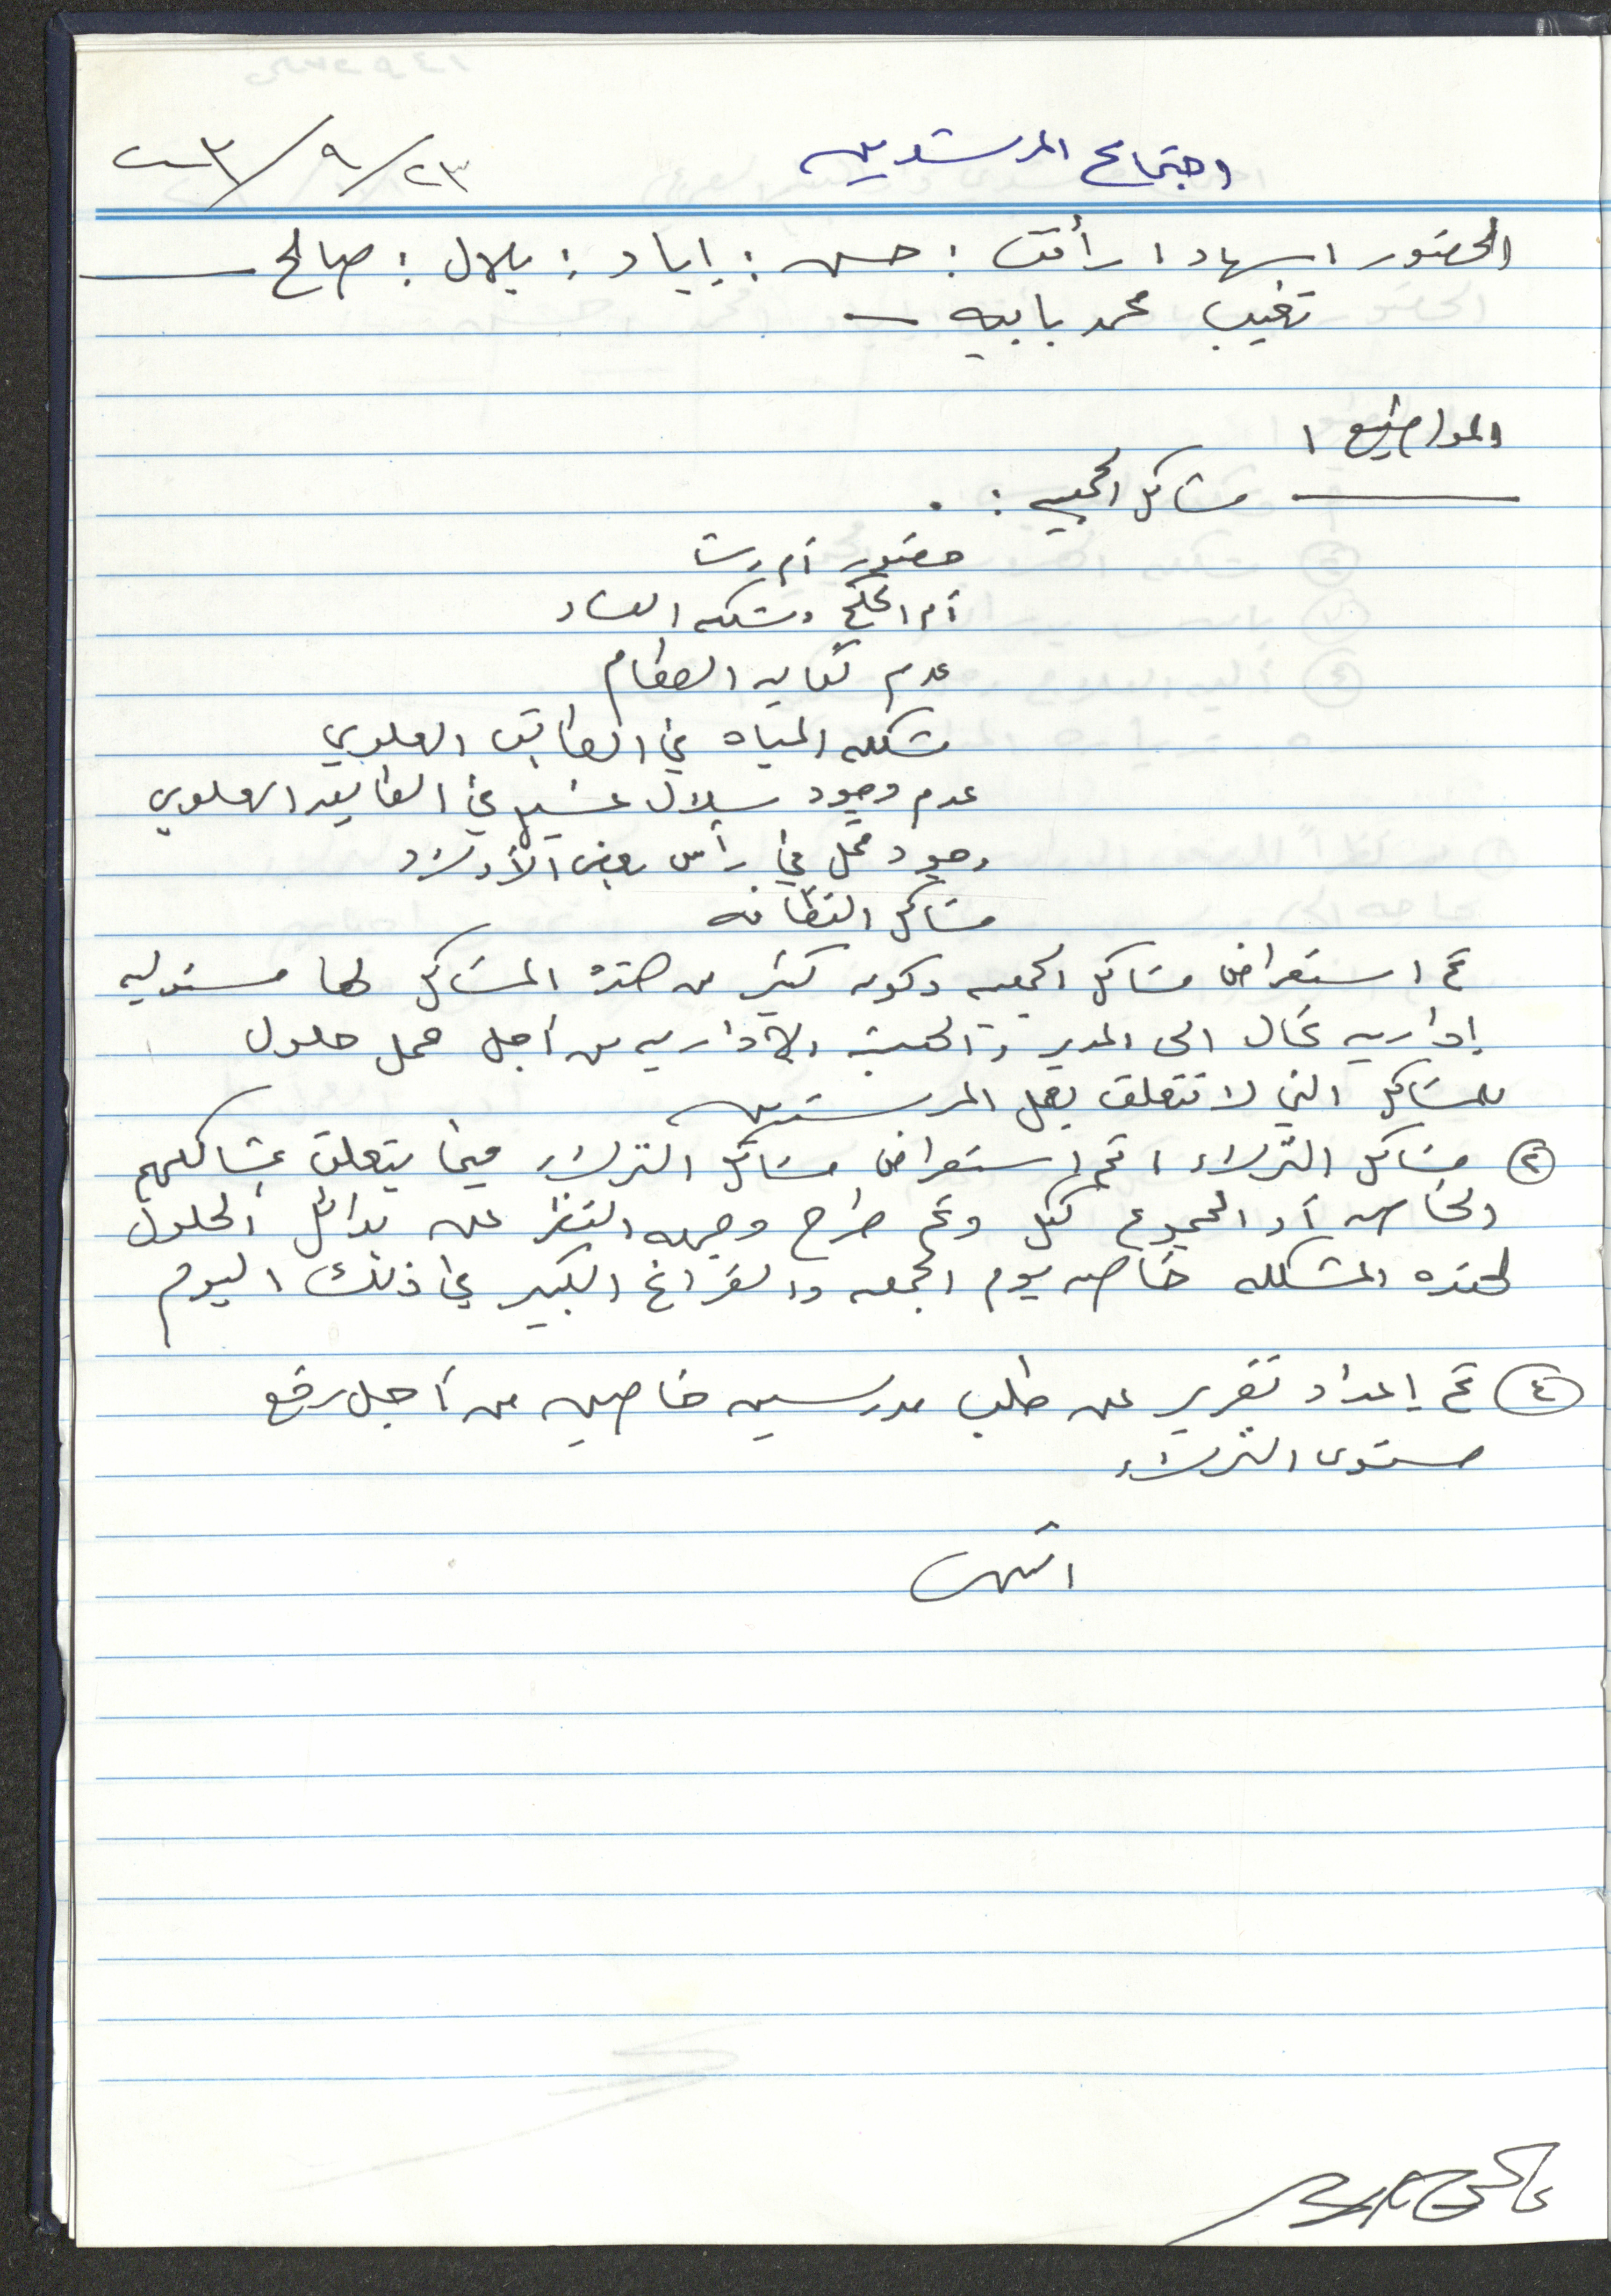 اجتماع المرشدين ٢٣/٩/٢٠٠٣
الحضور : سهاد : رأفت : حسن : إياد : بلال : صالح
تغيب محمد بابيه
المواضيع :
مشاكل الجمعيه :
حضور أم رشا
أم الحكم ومشكله الفساد
عدم كفايه الطعام
مشكله المياه في الطابق العلوي
عدم وجود سلال غسيل في الطابق العلوي
وجود قمل في رأس بعض الأولاد
مشاكل النظافه
تم استعراض مشاكل الجمعيه وكون كثير من هذه المشاكل لها مسئوليه
إداريه تحال الى المدير والهيئة الإداريه من أجل عمل حلول
للمشاكل التي لا تتعلق بعمل المرشدين
٢ مشاكل النزلاء : تم استعراض مشاكل النزلاء فيما يتعلق بمشاكلهم
الخاصه أو المجموع ككل وتم طرح وجهه النظر عن بدائل الحلول
لهذه المشكله خاصه يوم الجمعه والفراغ الكبير في ذلك اليوم
٤ تم إعداد تقرير عن طلب مدرسين خاصين من أجل رفع
مستوى النزلاء
انتهى